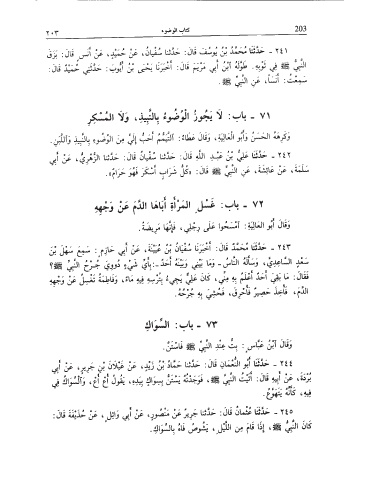 203 كتاب الوضوء ٢٠٣
٢٤١ - حَدَّثَنَا مُحَمَّدُ بْنُ يُوسُفَ قَالَ: حَدَّثَنَا سُفْيَانُ، عَنْ حُمَيْدٍ، عَنْ أَنَسٍ قَالَ: بَزَقَ
النَّبِيُّ ﷺ فِي ثَوْبِهِ. طَوَّلَهُ ابْنُ أَبِي مَرْيَمَ قَالَ: أَخْبَرَنَا يَحْيَى بْنُ أَيُّوبَ: حَدَّثَنِي حُمَيْدٌ قَالَ:
سَمِعْتُ: أَنَساً، عَنِ النَّبِيِّ ﷺ.
٧١ - باب: لَا يَجُوزُ الْوُضُوءُ بِالنَّبِيذِ، وَلَا المُسْكِرِ
وَكَرِهَهُ الحَسَنُ وَأَبُو الْعَالِيَةِ، وَقَالَ عَطَاءٌ: التَّيَمُّمُ أَحَبُّ إِلَيَّ مِنَ الْوُضُوءِ بِالنَّبِيذِ وَاللَّبَنِ.
٢٤٢ - حَدَّثَنَا عَلِيُّ بْنُ عَبْدِ اللَّهِ قَالَ: حَدَّثَنَا سُفْيَانُ قَالَ: حَدَّثَنَا الزُّهْرِيُّ، عَنْ أَبِي
سَلَمَةَ، عَنْ عَائِشَةَ، عَنِ النَّبِيِّ ﷺ قَالَ: «كُلُّ شَرَابٍ أَسْكَرَ فَهُوَ حَرَامٌ».
٧٢ - باب: غَسْلِ المَرْأَةِ أَبَاهَا الدَّمَ عَنْ وَجْهِهِ
وَقَالَ أَبُو الْعَالِيَةِ: امْسَحُوا عَلَى رِجْلِي، فَإِنَّهَا مَرِيضَةٌ.
٢٤٣ - حَدَّثَنَا مُحَمَّدٌ قَالَ: أَخْبَرَنَا سُفْيَانُ بْنُ عُيَيْنَةَ، عَنْ أَبِي حَازِمٍ: سَمِعَ سَهْلَ بْنَ
سَعْدٍ السَّاعِدِيَّ، وَسَأَلَهُ النَّاسُ - وَمَا بَيْنِي وَبَيْنَهُ أَحَدٌ -: بِأَيِّ شَيْءٍ دُووِيَ جُرْحُ النَّبِيِّ ﷺ؟
فَقَالَ: مَا بَقِيَ أَحَدٌ أَعْلَمُ بِهِ مِنِّي، كَانَ عَلِيٌّ يَجِيءُ بِتُرْسِهِ فِيهِ مَاءٌ، وَفَاطِمَةُ تَغْسِلُ عَنْ وَجْهِهِ
الدَّمَ، فَأُخِذَ حَصِيرٌ فَأُحْرِقَ، فَحُشِيَ بِهِ جُرْحُهُ.
٧٣ - باب: السِّوَاكِ
وَقَالَ ابْنُ عَبَّاسٍ: بِتُّ عِنْدَ النَّبِيِّ ﷺ فَاسْتَنَّ.
٢٤٤ - حَدَّثَنَا أَبُو النُّعْمَانِ قَالَ: حَدَّثَنَا حَمَّادُ بْنُ زَيْدٍ، عَنْ غَيْلَانَ بْنِ جَرِيرٍ، عَنْ أَبِي
بُرْدَةَ، عَنْ أَبِيهِ قَالَ: أَتَيْتُ النَّبِيَّ ﷺ، فَوَجَدْتُهُ يَسْتَنُّ بِسِوَاكٍ بِيَدِهِ، يَقُولُ أُعْ أُعْ، وَالسِّوَاكُ فِي
فِيهِ، كَأَنَّهُ يَتَهَوَّعُ.
٢٤٥ - حَدَّثَنَا عُثْمَانُ قَالَ: حَدَّثَنَا جَرِيرٌ عَنْ مَنْصُورٍ، عَنْ أَبِي وَائِلٍ، عَنْ حُذَيْفَةَ قَالَ:
كَانَ النَّبِيُّ ﷺ، إِذَا قَامَ مِنَ اللَّيْلِ، يَشُوصُ فَاهُ بِالسِّوَاكِ.